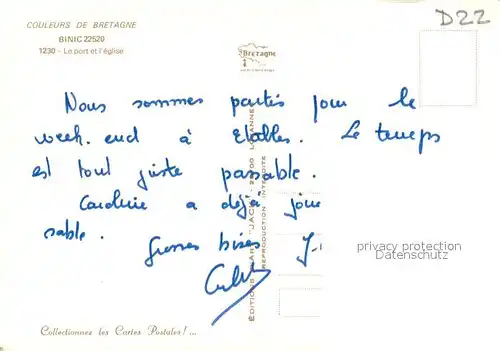 COULEURS DE BRETAGNE
BINIC 22520
1230 - Le port et l'église
Bretagne
D22
Nous sommes partis pour le
week-end à Etables. Le temps
est tout juste passable.
Caroline a déjà joué
sable.
Grosses bises J-
EDITIONS D'ART "JACK"
REPRODUCTION INTERDITE
privacy protection
Datenschutz
Collectionnez les Cartes Postales !...